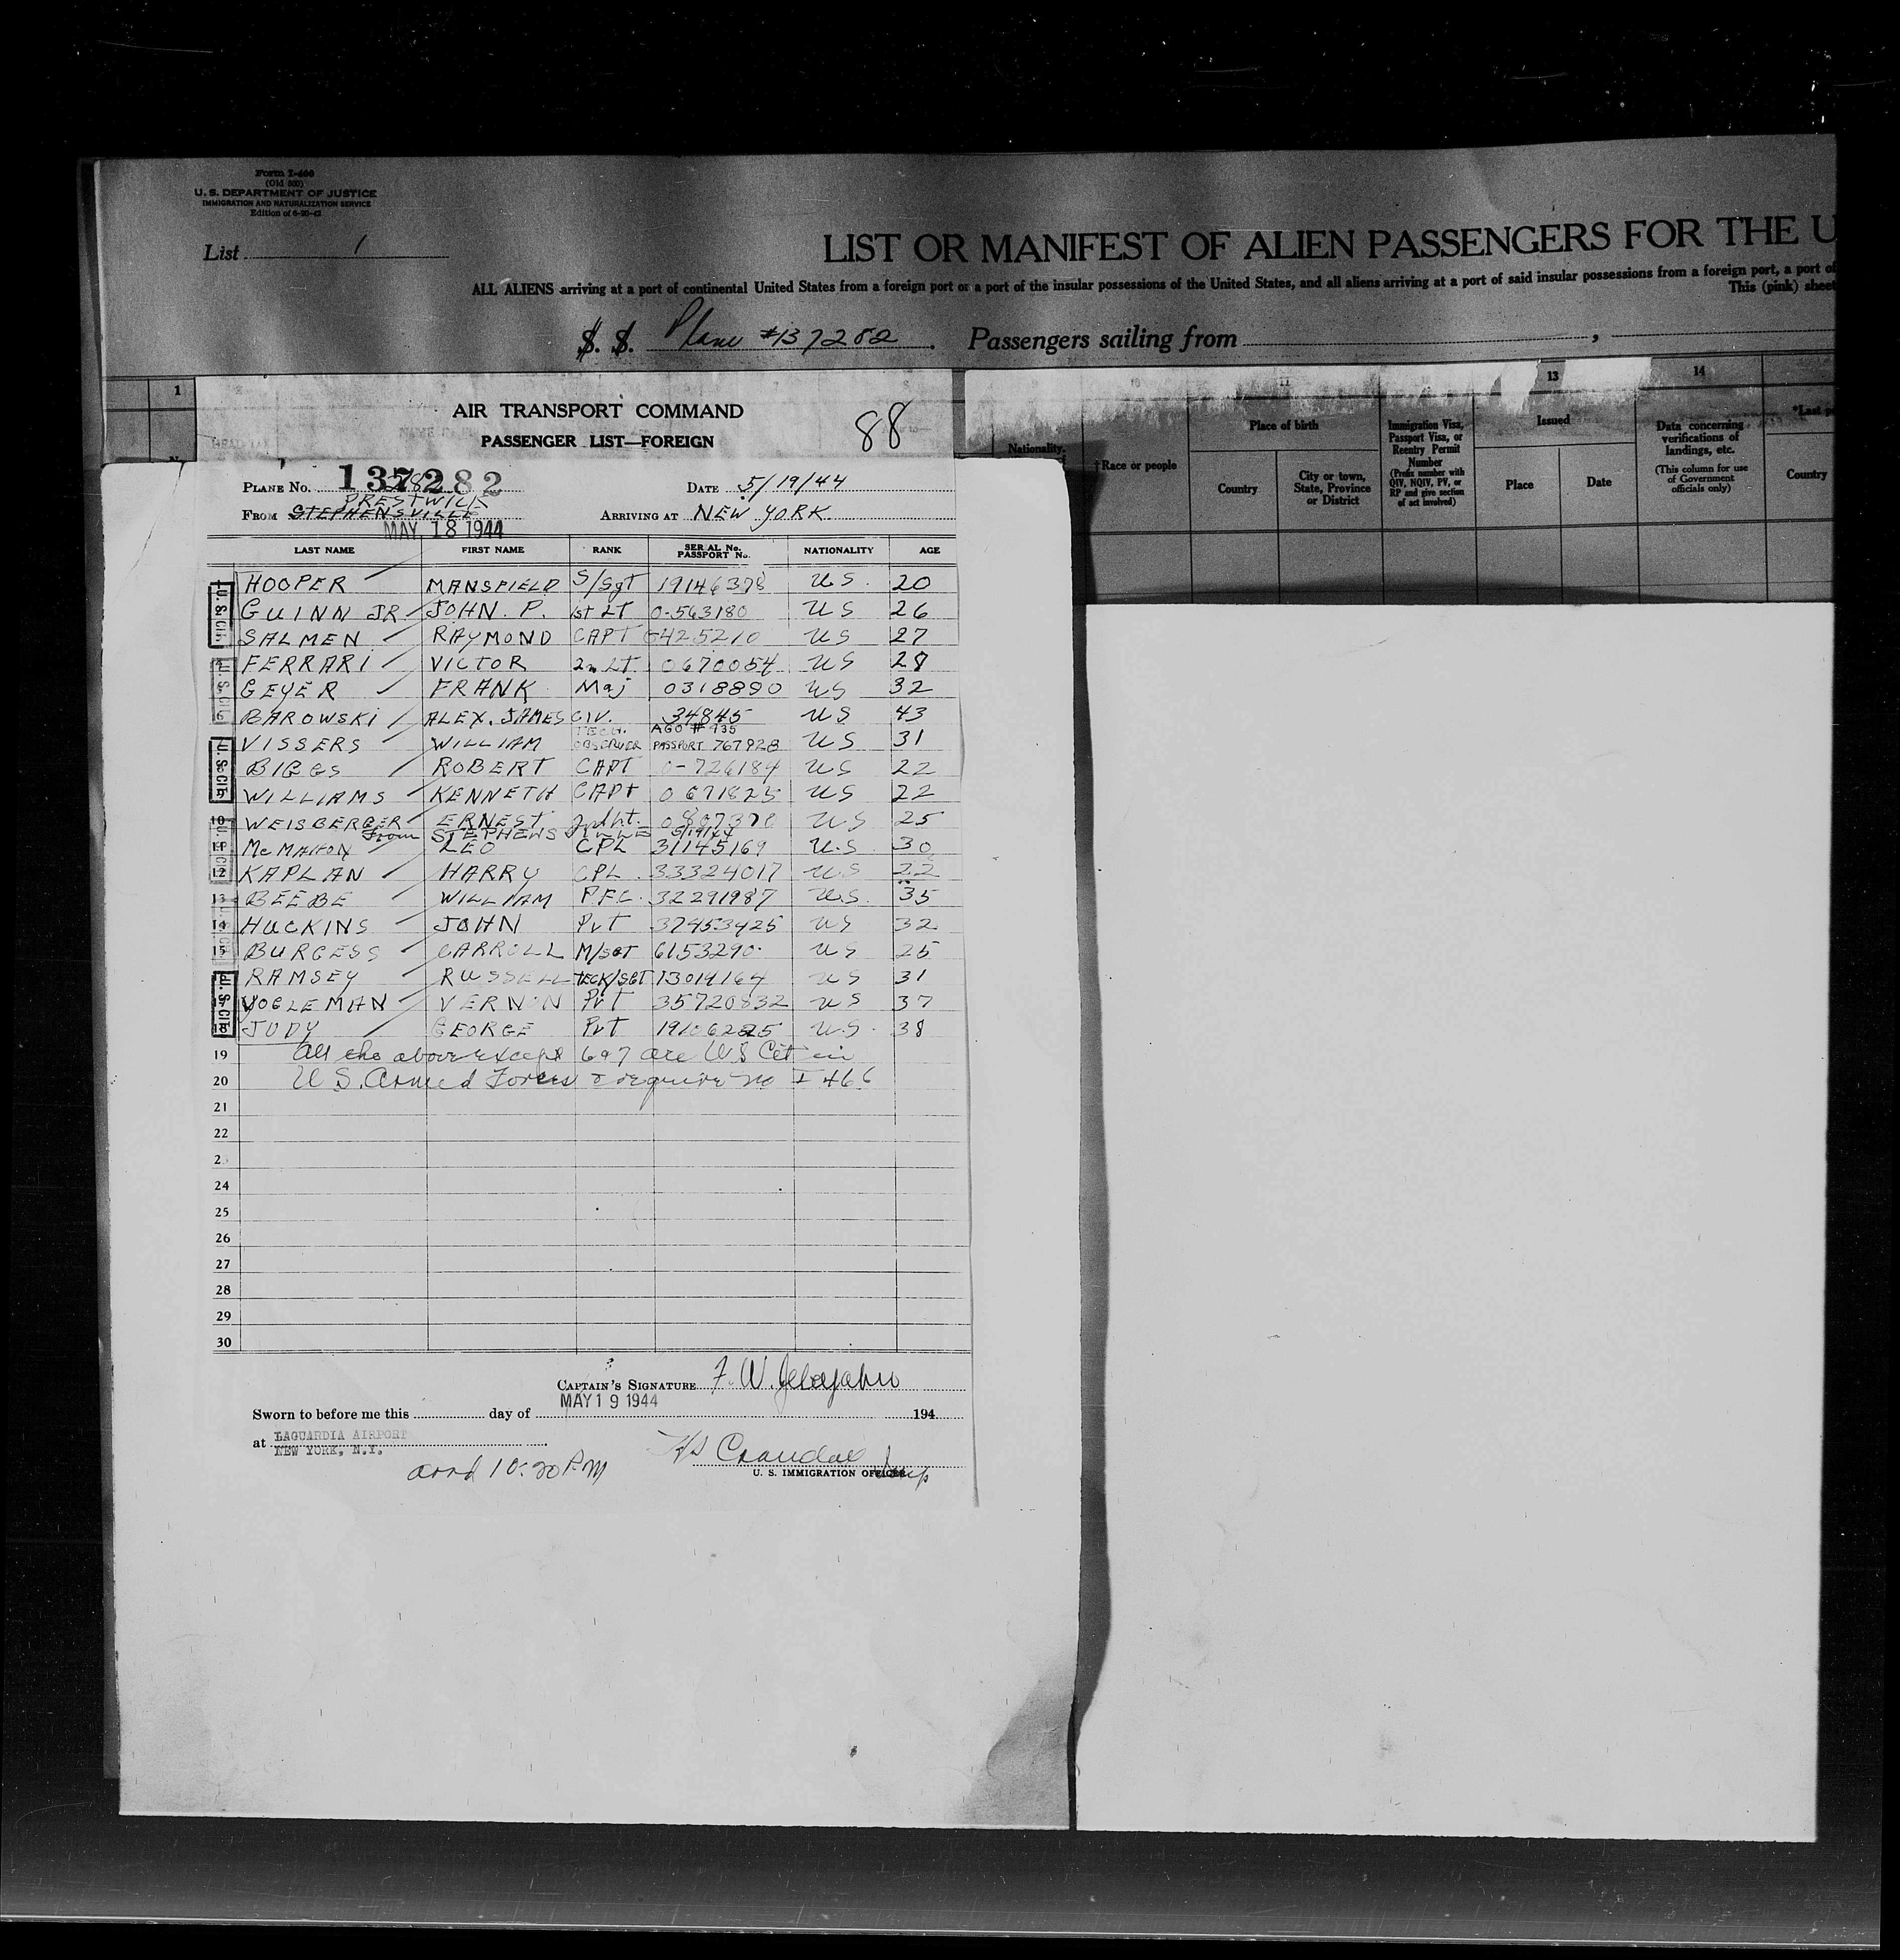 Form I-466
(Old 500)
U. S. DEPARTMENT OF JUSTICE
IMMIGRATION AND NATURALIZATION SERVICE
Edition of 6-20-42
List 1
LIST OR MANIFEST OF ALIEN PASSENGERS FOR THE U
ALL ALIENS arriving at a port of continental United States from a foreign port or a port of the insular possessions of the United States, and all aliens arriving at a port of said insular possessions from a foreign port, a port of
This (pink) sheet
S. S. Plane #137282 . Passengers sailing from ,
1 11 13 14
Place of birth
Immigration Visa, Passport Visa, or Reentry Permit Number
(Prefix number with QIV, NQIV, PV, or RP and give section of act involved)
Issued
Data concerning verifications of landings, etc.
(This column for use of Government officials only)
*Last
Nationality.
†Race or people
Country
City or town, State, Province or District
Place
Date
Country
AIR TRANSPORT COMMAND
PASSENGER LIST—FOREIGN
88
PLANE NO. 137282 DATE 5/19/44
PRESTWICK
FROM STEPHENSVILLE ARRIVING AT NEW YORK
MAY 18 1944
LAST NAME FIRST NAME RANK SERIAL No. PASSPORT No. NATIONALITY AGE
HOOPER MANSFIELD S/Sgt 19146378 US. 20
GUINN JR. JOHN. P. 1ST LT 0-563180 US 26
SALMEN RAYMOND CAPT 0425210 US 27
FERRARI VICTOR 2n LT 0670054 US 28
GEYER FRANK Maj 0318890 US 32
BAROWSKI ALEX. JAMES CIV. 34845 US 43
VISSERS WILLIAM TECH. OBSERVER AGO # 935 PASSPORT 767928 US 31
BIGGS ROBERT CAPT 0-726184 US 22
WILLIAMS KENNETH CAPT 0671825 US 22
10 WEISBERGER ERNEST 2nd Lt. 0807378 US 25
from STEPHENSVILLE 5/19/44
McMAHON LEO CPL 31145169 U.S 30
12 KAPLAN HARRY CPL. 33324017 US 22
13 BEEBE WILLIAM PFC. 32291987 U.S. 35
14 HUCKINS JOHN PVT 37453425 US 32
15 BURGESS CARROLL M/SGT 6153290 US 25
RAMSEY RUSSELL TECH/SGT 13014164 US 31
VOGLEMAN VERNON PVT 35720832 US 37
JUDY GEORGE PVT 19106225 U.S. 38
19 All the above except 6&7 are US Cit in
20 U.S. Armed Forces & require no I 466
21
22
23
24
25
26
27
28
29
30
CAPTAIN'S SIGNATURE F. W.
MAY 19 1944
Sworn to before me this day of 194
at LAGUARDIA AIRPORT
NEW YORK, N.Y.
arrd 10:20 PM Crandall Insp
U. S. IMMIGRATION OFFICER